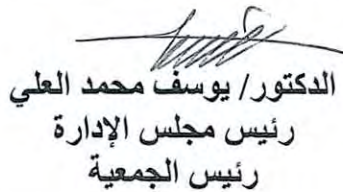 الدكتور/ يوسف محمد العلي
رئيس مجلس الإدارة
رئيس الجمعية